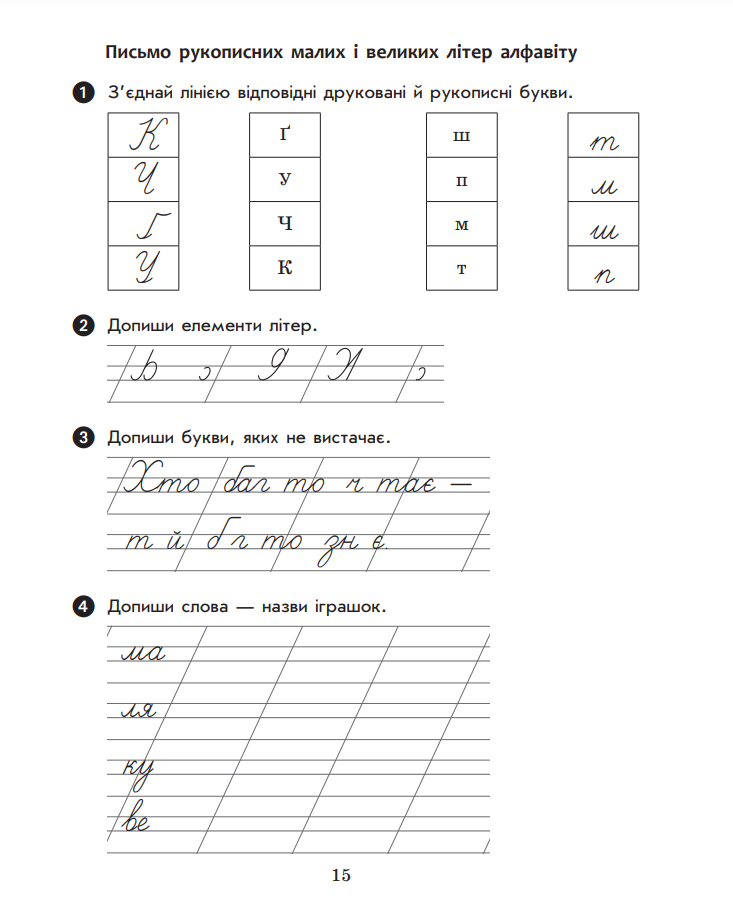 Письмо рукописних малих і великих літер алфавіту
1 З’єднай лінією відповідні друковані й рукописні букви.
К Ґ ш т
Ч У п м
Г Ч м ш
У К т п
2 Допиши елементи літер.
3 Допиши букви, яких не вистачає.
Хто баг то ч тає —
т й б г то зн є.
4 Допиши слова — назви іграшок.
ма
ля
ку
ве
15